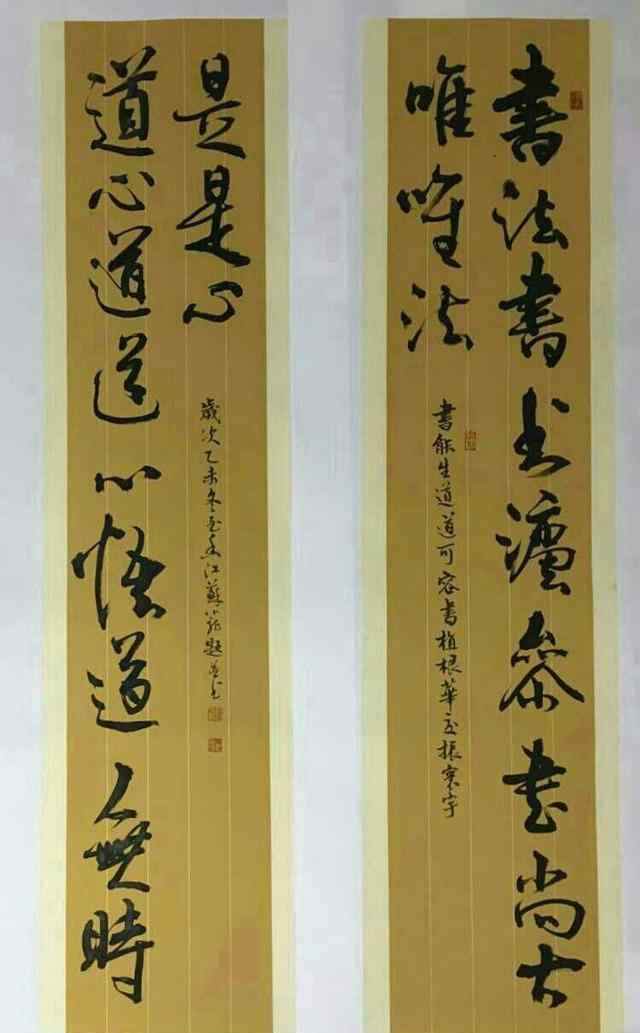 書法書書灋叅書尚古
唯唯法
書能生道道可容書植根華夏振寰宇
道心道道心悟道無時
是是心
歲次乙未冬至 江蘇 題並書